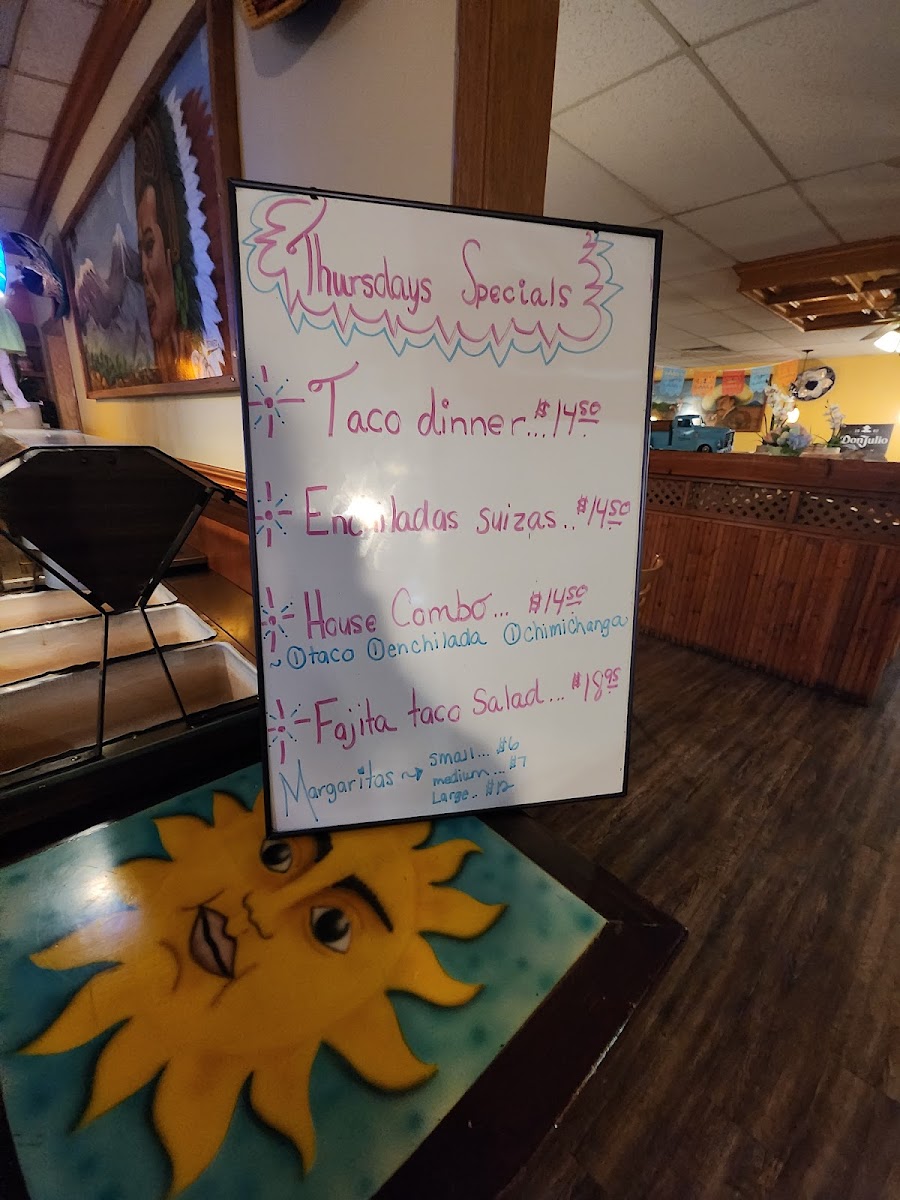 Thursdays Specials
Taco dinner...$14 50
Enchiladas suizas..$14 50
House Combo... $14 50
~ ①taco ①enchilada ①chimichanga
Fajita taco Salad... $18 95
Margaritas ~> small... $6
medium... $7
Large.. $12
Don Julio